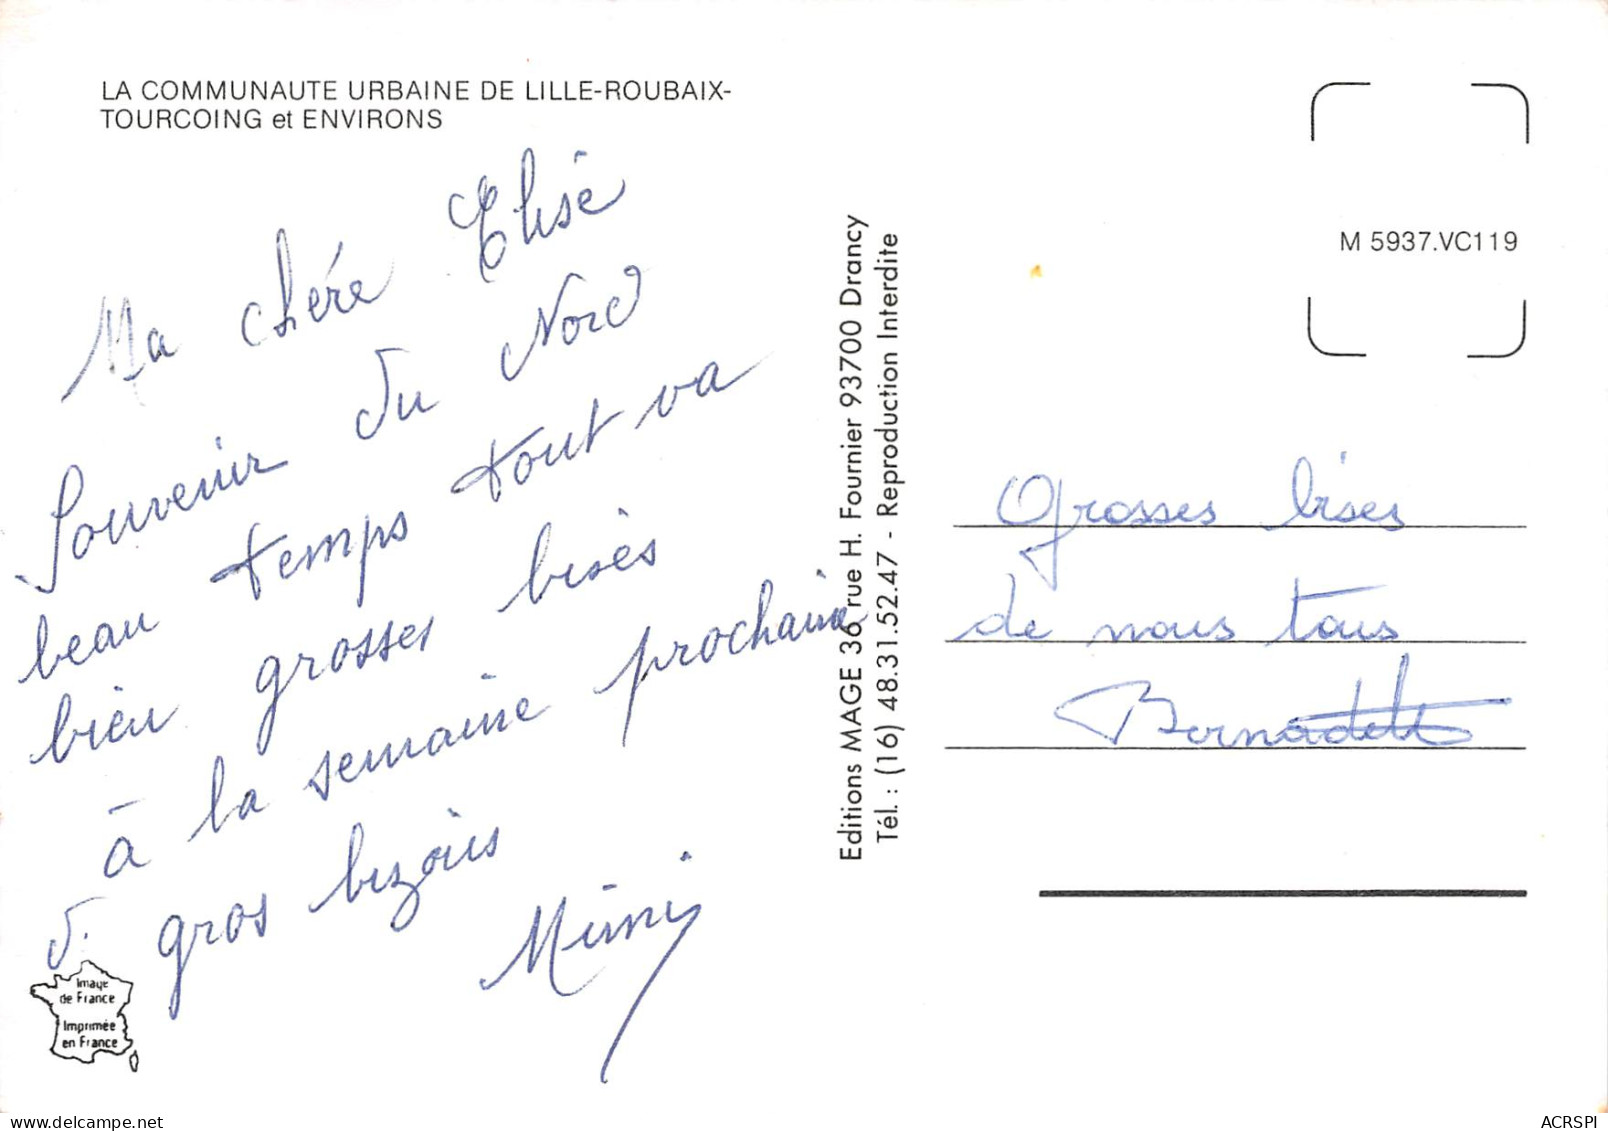 LA COMMUNAUTE URBAINE DE LILLE-ROUBAIX-
TOURCOING et ENVIRONS
Ma chére Elise
Souvenir du Nord
beau temps tout va
bien grosses bises
à la semaine prochaine
gros bizous
Mimi
Image
de France
Imprimée
en France
Editions MAGE 36, rue H. Fournier 93700 Drancy
Tél. : (16) 48.31.52.47 - Reproduction Interdite
M 5937.VC119
Grosses bises
de nous tous
Bernadette
ACRSPI